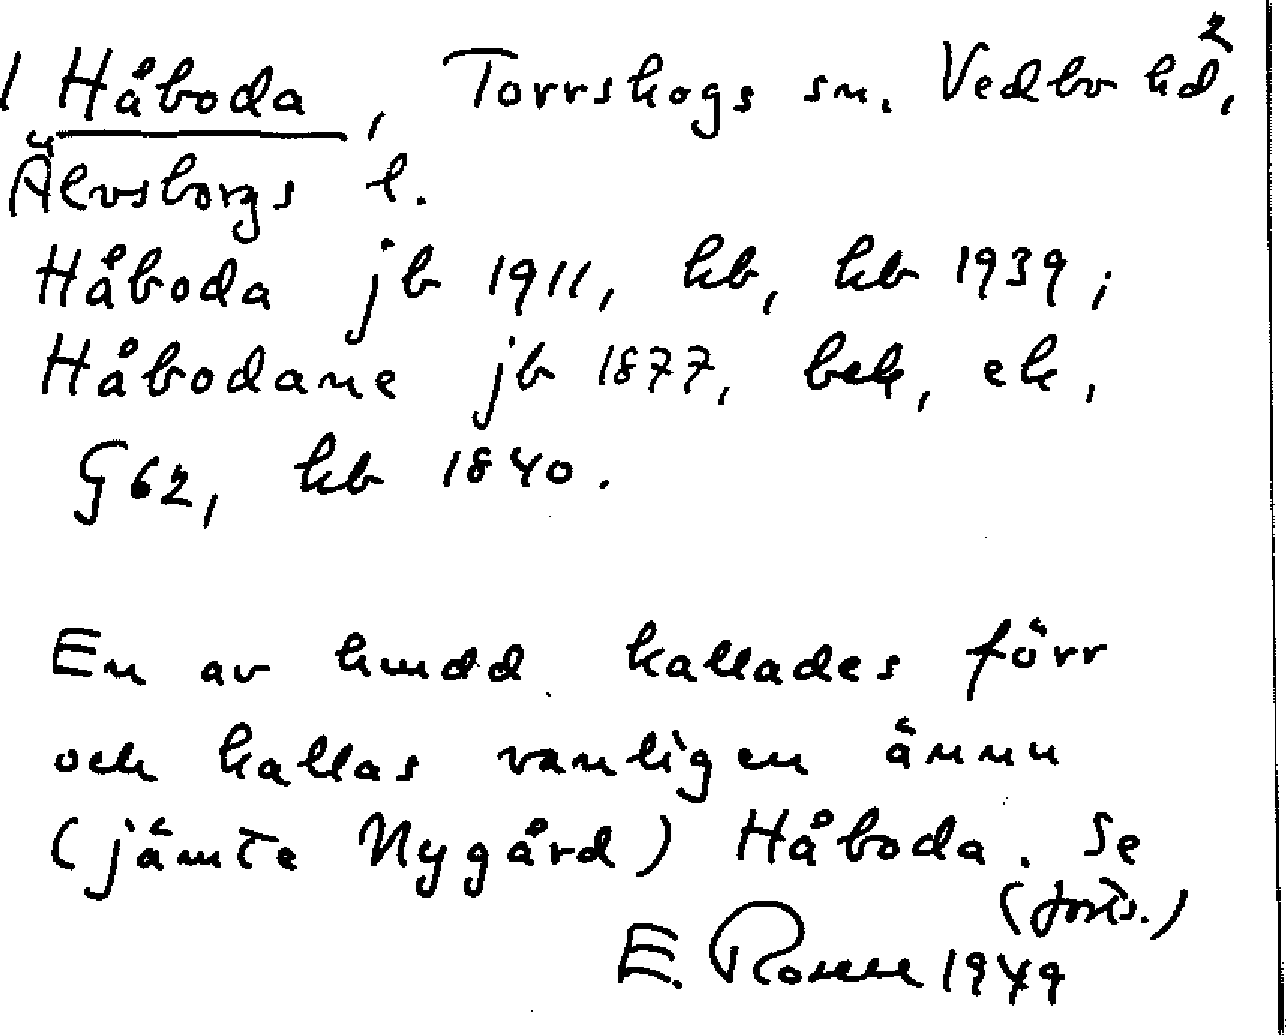 1 Håboda, Torrskogs sn. Vedbo hd,²
Älvsborgs l.
Håboda jb 1911, kb, kb 1939;
Håbodane jb 1877, bek, ek,
G 62, kb 1840.
En av hmdd kallades förr
och kallas vanligen ännu
(jämte Nygård) Håboda. Se
(forts.)
E. Rosell 1949